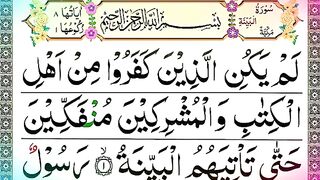 سُورَةُ الْبَيِّنَةِ مَدَنِيَّةٌ
بِسْمِ اللّٰهِ الرَّحْمٰنِ الرَّحِيْمِ
اٰيَاتُهَا ٨ رُكُوْعُهَا ١
لَمْ يَكُنِ الَّذِيْنَ كَفَرُوْا مِنْ اَهْلِ
الْكِتٰبِ وَالْمُشْرِكِيْنَ مُنْفَكِّيْنَ
حَتّٰى تَاْتِيَهُمُ الْبَيِّنَةُ ۙ ١ رَسُوْلٌ